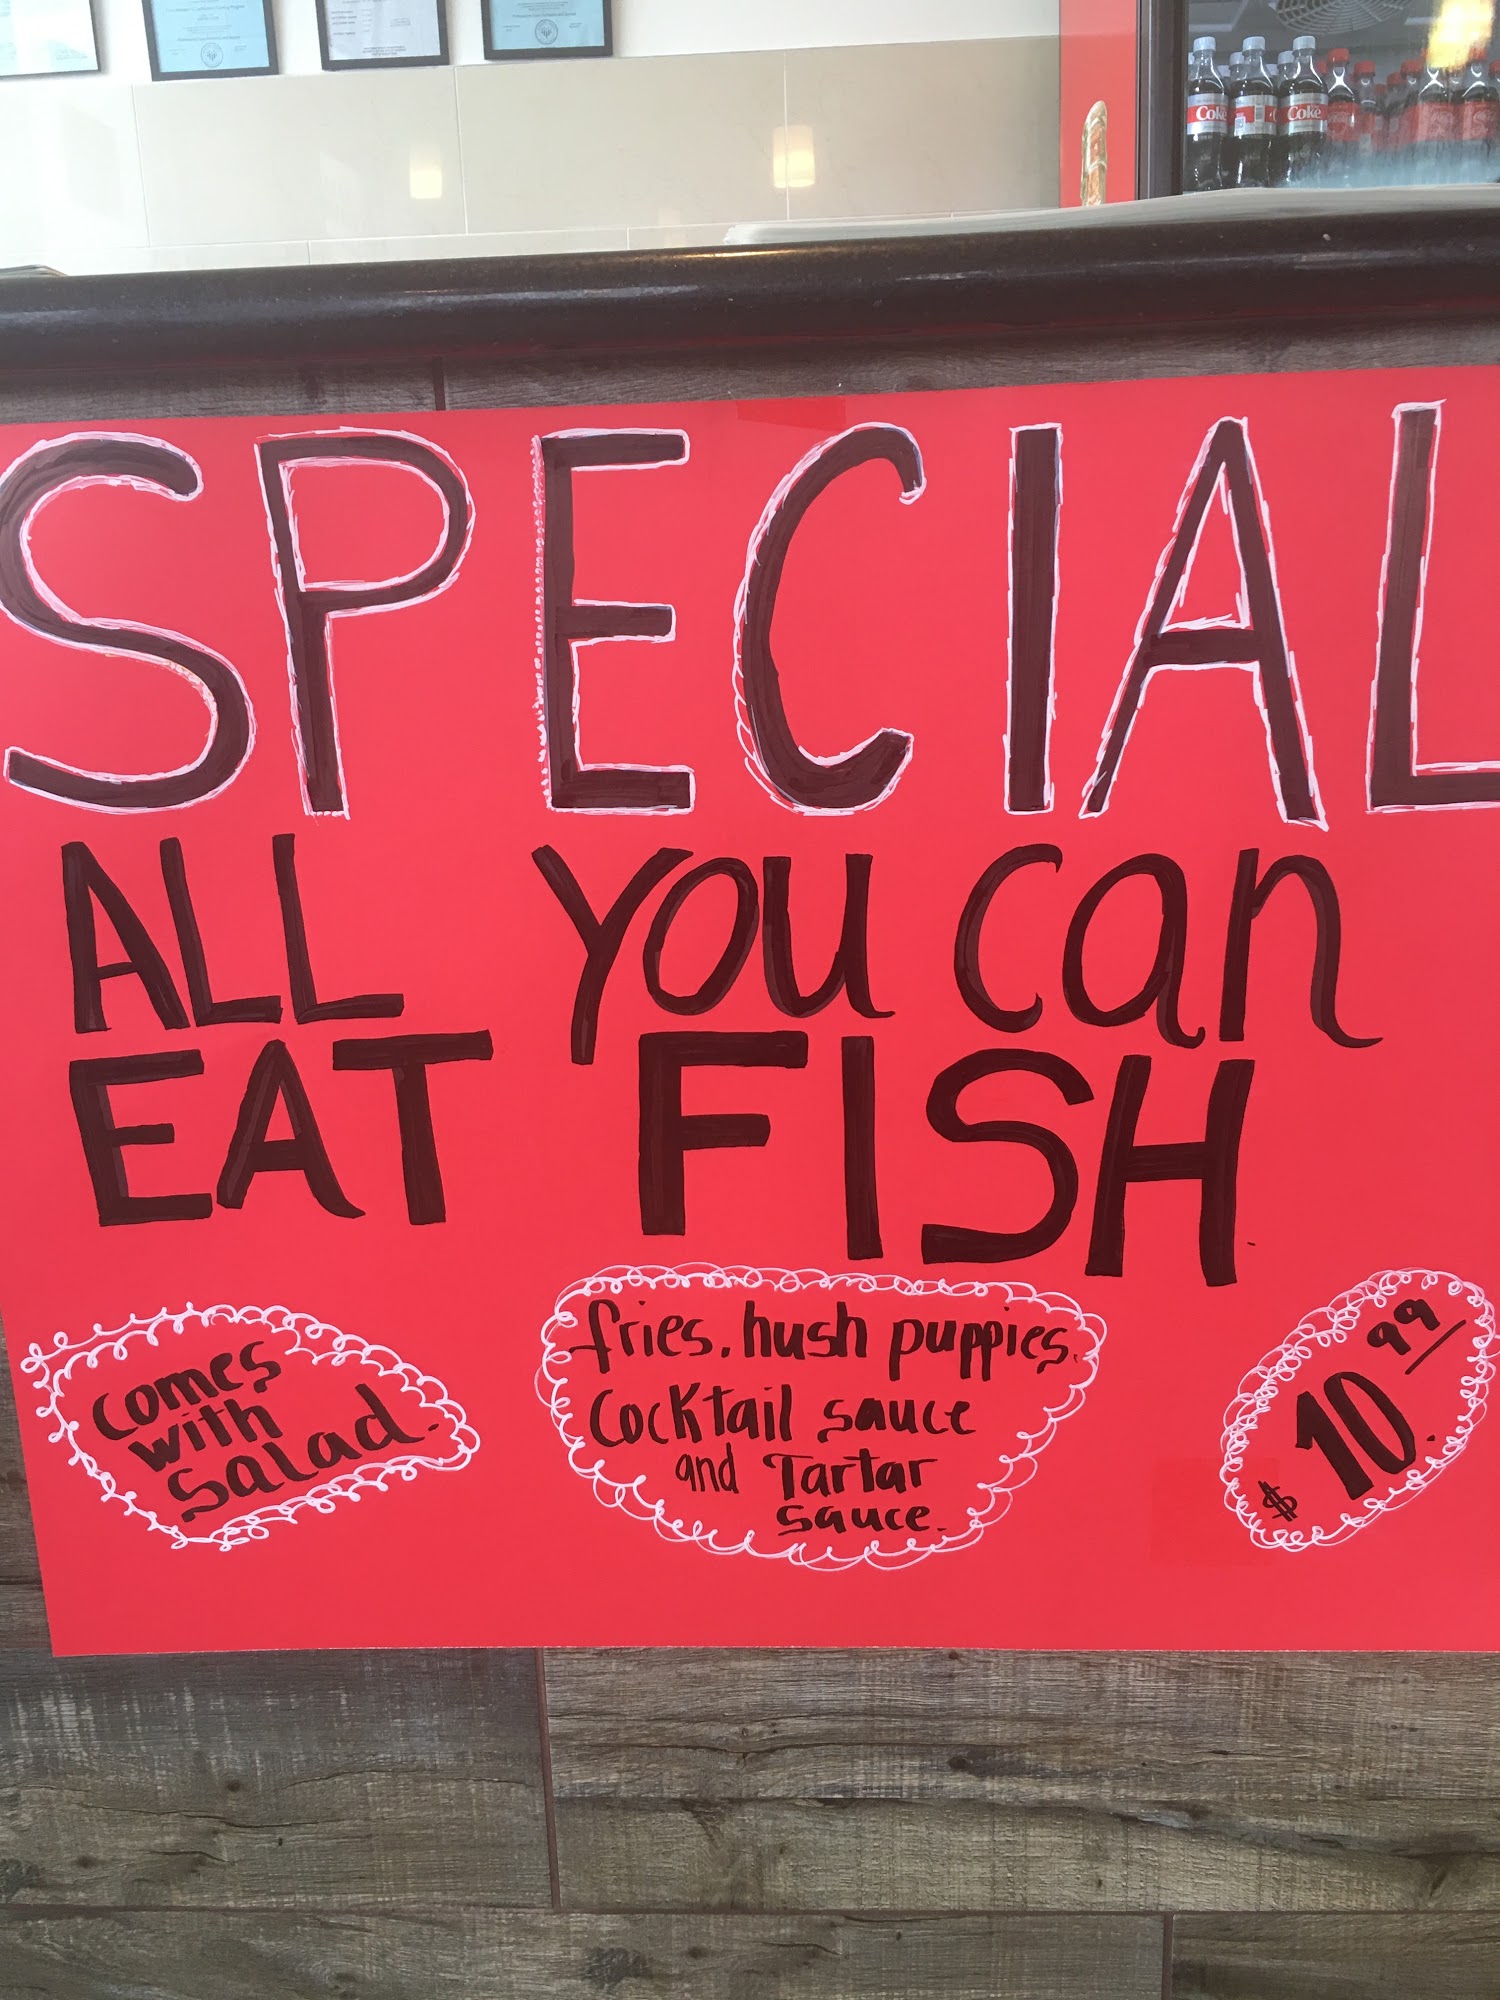 Coke Coke
SPECIAL
ALL YOU can
EAT FISH
comes
with
salad.
fries, hush puppies,
Cocktail sauce
and Tartar
sauce.
$10.99